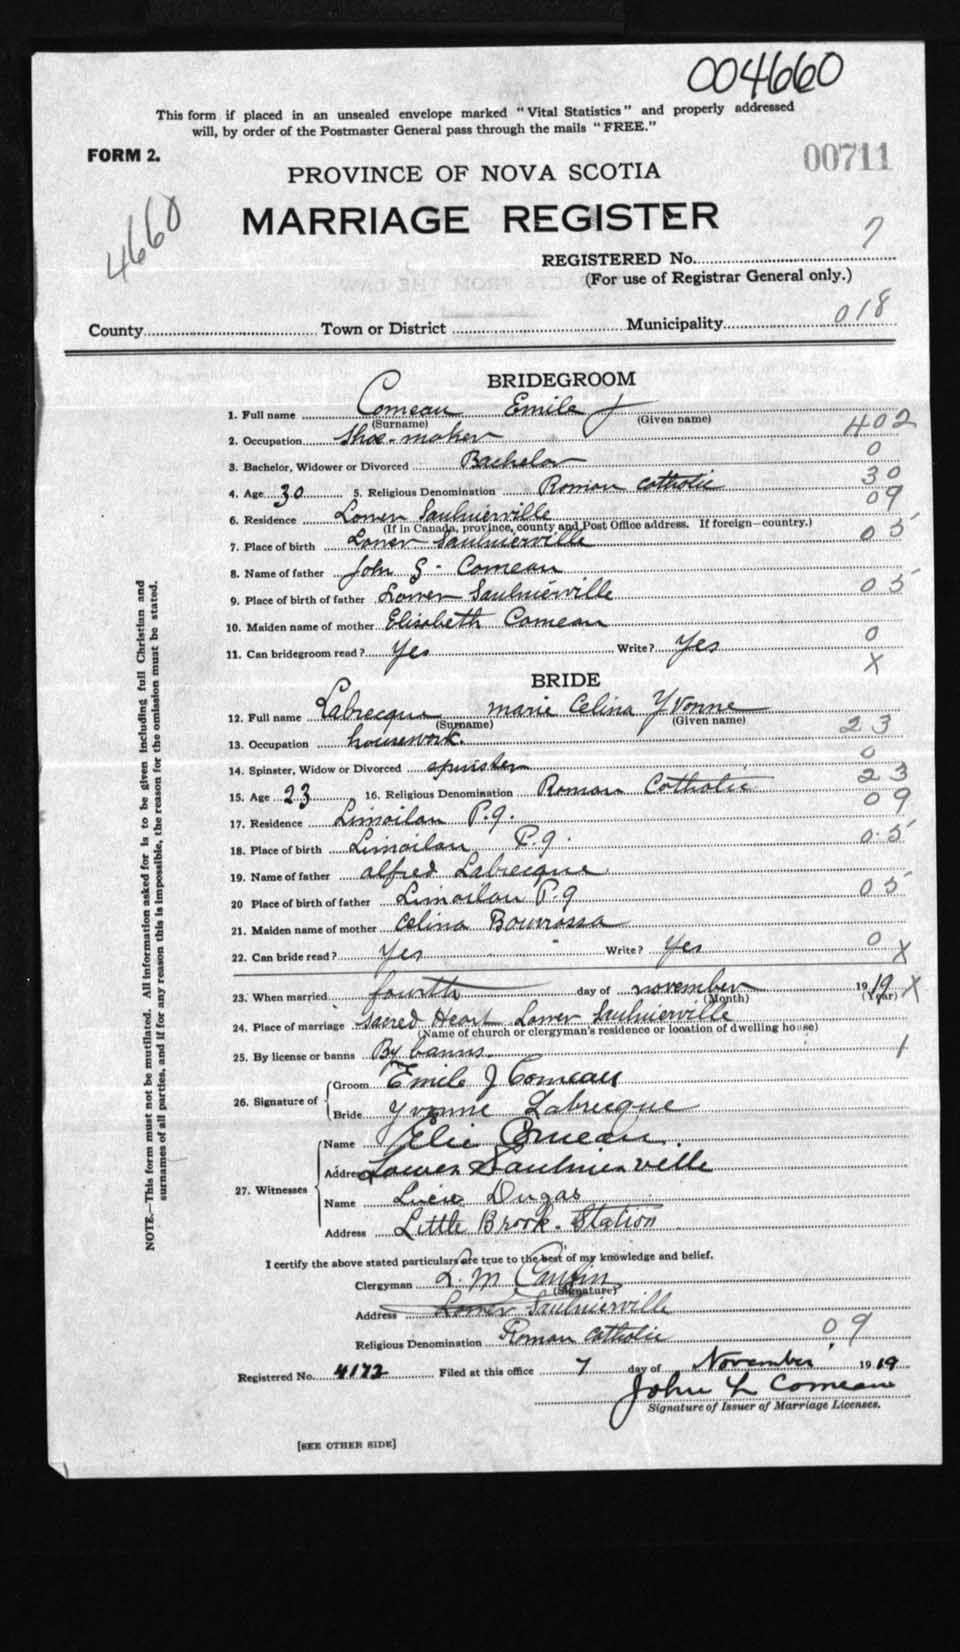 004660
This form if placed in an unsealed envelope marked "Vital Statistics" and properly addressed
will, by order of the Postmaster General pass through the mails "FREE."
FORM 2.
00711
PROVINCE OF NOVA SCOTIA
4660
MARRIAGE REGISTER
REGISTERED No. 7
(For use of Registrar General only.)
County Town or District Municipality 018
BRIDEGROOM
1. Full name Comeau Emile J
(Surname) (Given name)
402
2. Occupation Shoe-maker
3. Bachelor, Widower or Divorced Bachelor 0
4. Age 30 5. Religious Denomination Roman catholic 30
6. Residence Lower Saulnierville 09
(If in Canada, province, county and Post Office address. If foreign—country.)
7. Place of birth Lower Saulnierville 05
8. Name of father John S. Comeau
9. Place of birth of father Lower Saulnierville 05
10. Maiden name of mother Elisabeth Comeau
11. Can bridegroom read? Yes Write? Yes 0
X
BRIDE
12. Full name Labrecque marie Celina Yvonne
(Surname) (Given name)
13. Occupation housework. 23
14. Spinster, Widow or Divorced spinster 0
15. Age 23 16. Religious Denomination Roman Catholic 23
17. Residence Limoilou P.q. 09
18. Place of birth Limoilou P.q. 05
19. Name of father alfred Labrecque
20 Place of birth of father Limoilou P.q 05
21. Maiden name of mother Celina
22. Can bride read? Yes Write? Yes 0 X
23. When married fourth day of november 1919 X
(Month) (Year)
24. Place of marriage sacred Heart Lower Saulnierville
(Name of church or clergyman's residence or location of dwelling house)
25. By license or banns By banns. 1
26. Signature of
Groom Emile J Comeau
Bride Yvonne Labrecque
27. Witnesses
Name Elie Comeau.
Address Lower Saulnierville
Name Lucie Dugas
Address Little Brook Station
I certify the above stated particulars are true to the best of my knowledge and belief.
Clergyman L. M
(Signature)
Address Lower Saulnierville
Religious Denomination Roman catholic 09
Registered No. 4172 Filed at this office 7 day of November 1919
John L Comeau
Signature of Issuer of Marriage Licenses.
[SEE OTHER SIDE]
NOTE.—This form must not be mutilated. All information asked for is to be given including full Christian and
surnames of all parties, and if for any reason this is impossible, the reason for the omission must be stated.